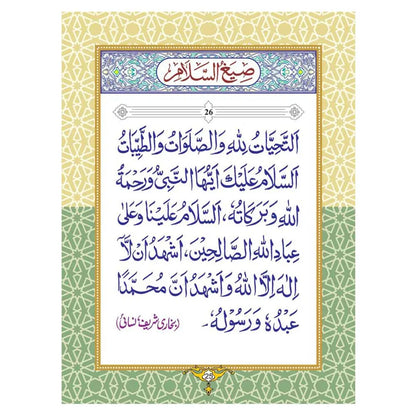 صیغ السلام
26
اَلتَّحِيَّاتُ لِلّٰهِ وَالصَّلَوَاتُ وَالطَّيِّبَاتُ
اَلسَّلَامُ عَلَيْكَ اَيُّهَا النَّبِيُّ وَرَحْمَةُ
اللهِ وَبَرَكَاتُهٗ، اَلسَّلَامُ عَلَيْنَا وَعَلٰی
عِبَادِ اللهِ الصَّالِحِيْنَ، اَشْهَدُ اَنْ لَّا
اِلٰهَ اِلَّا اللهُ وَاَشْهَدُ اَنَّ مُحَمَّدًا
عَبْدُهٗ وَرَسُوْلُهٗ۔ (بخاری شریف، نسائی)